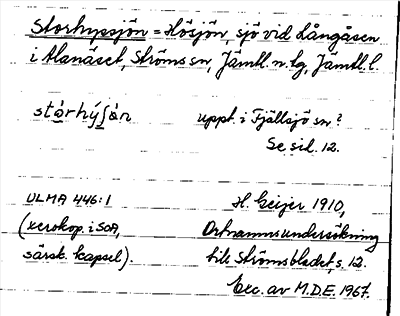 Storhyssjön = Hösjön, sjö vid Långåsen
i Alanäset, Ströms sn, Jämtl. n. tg, Jämtl. l.
stórhýʃàn uppt. i Fjällsjö sn?
Se sid. 12.
ULMA 446:1 H. Geijer 1910,
(xerokop. i SOA, Ortnamnsundersökning
särsk. kapsel). bil. Strömsbladet, s. 12.
Exc. av M.D.E. 1967.